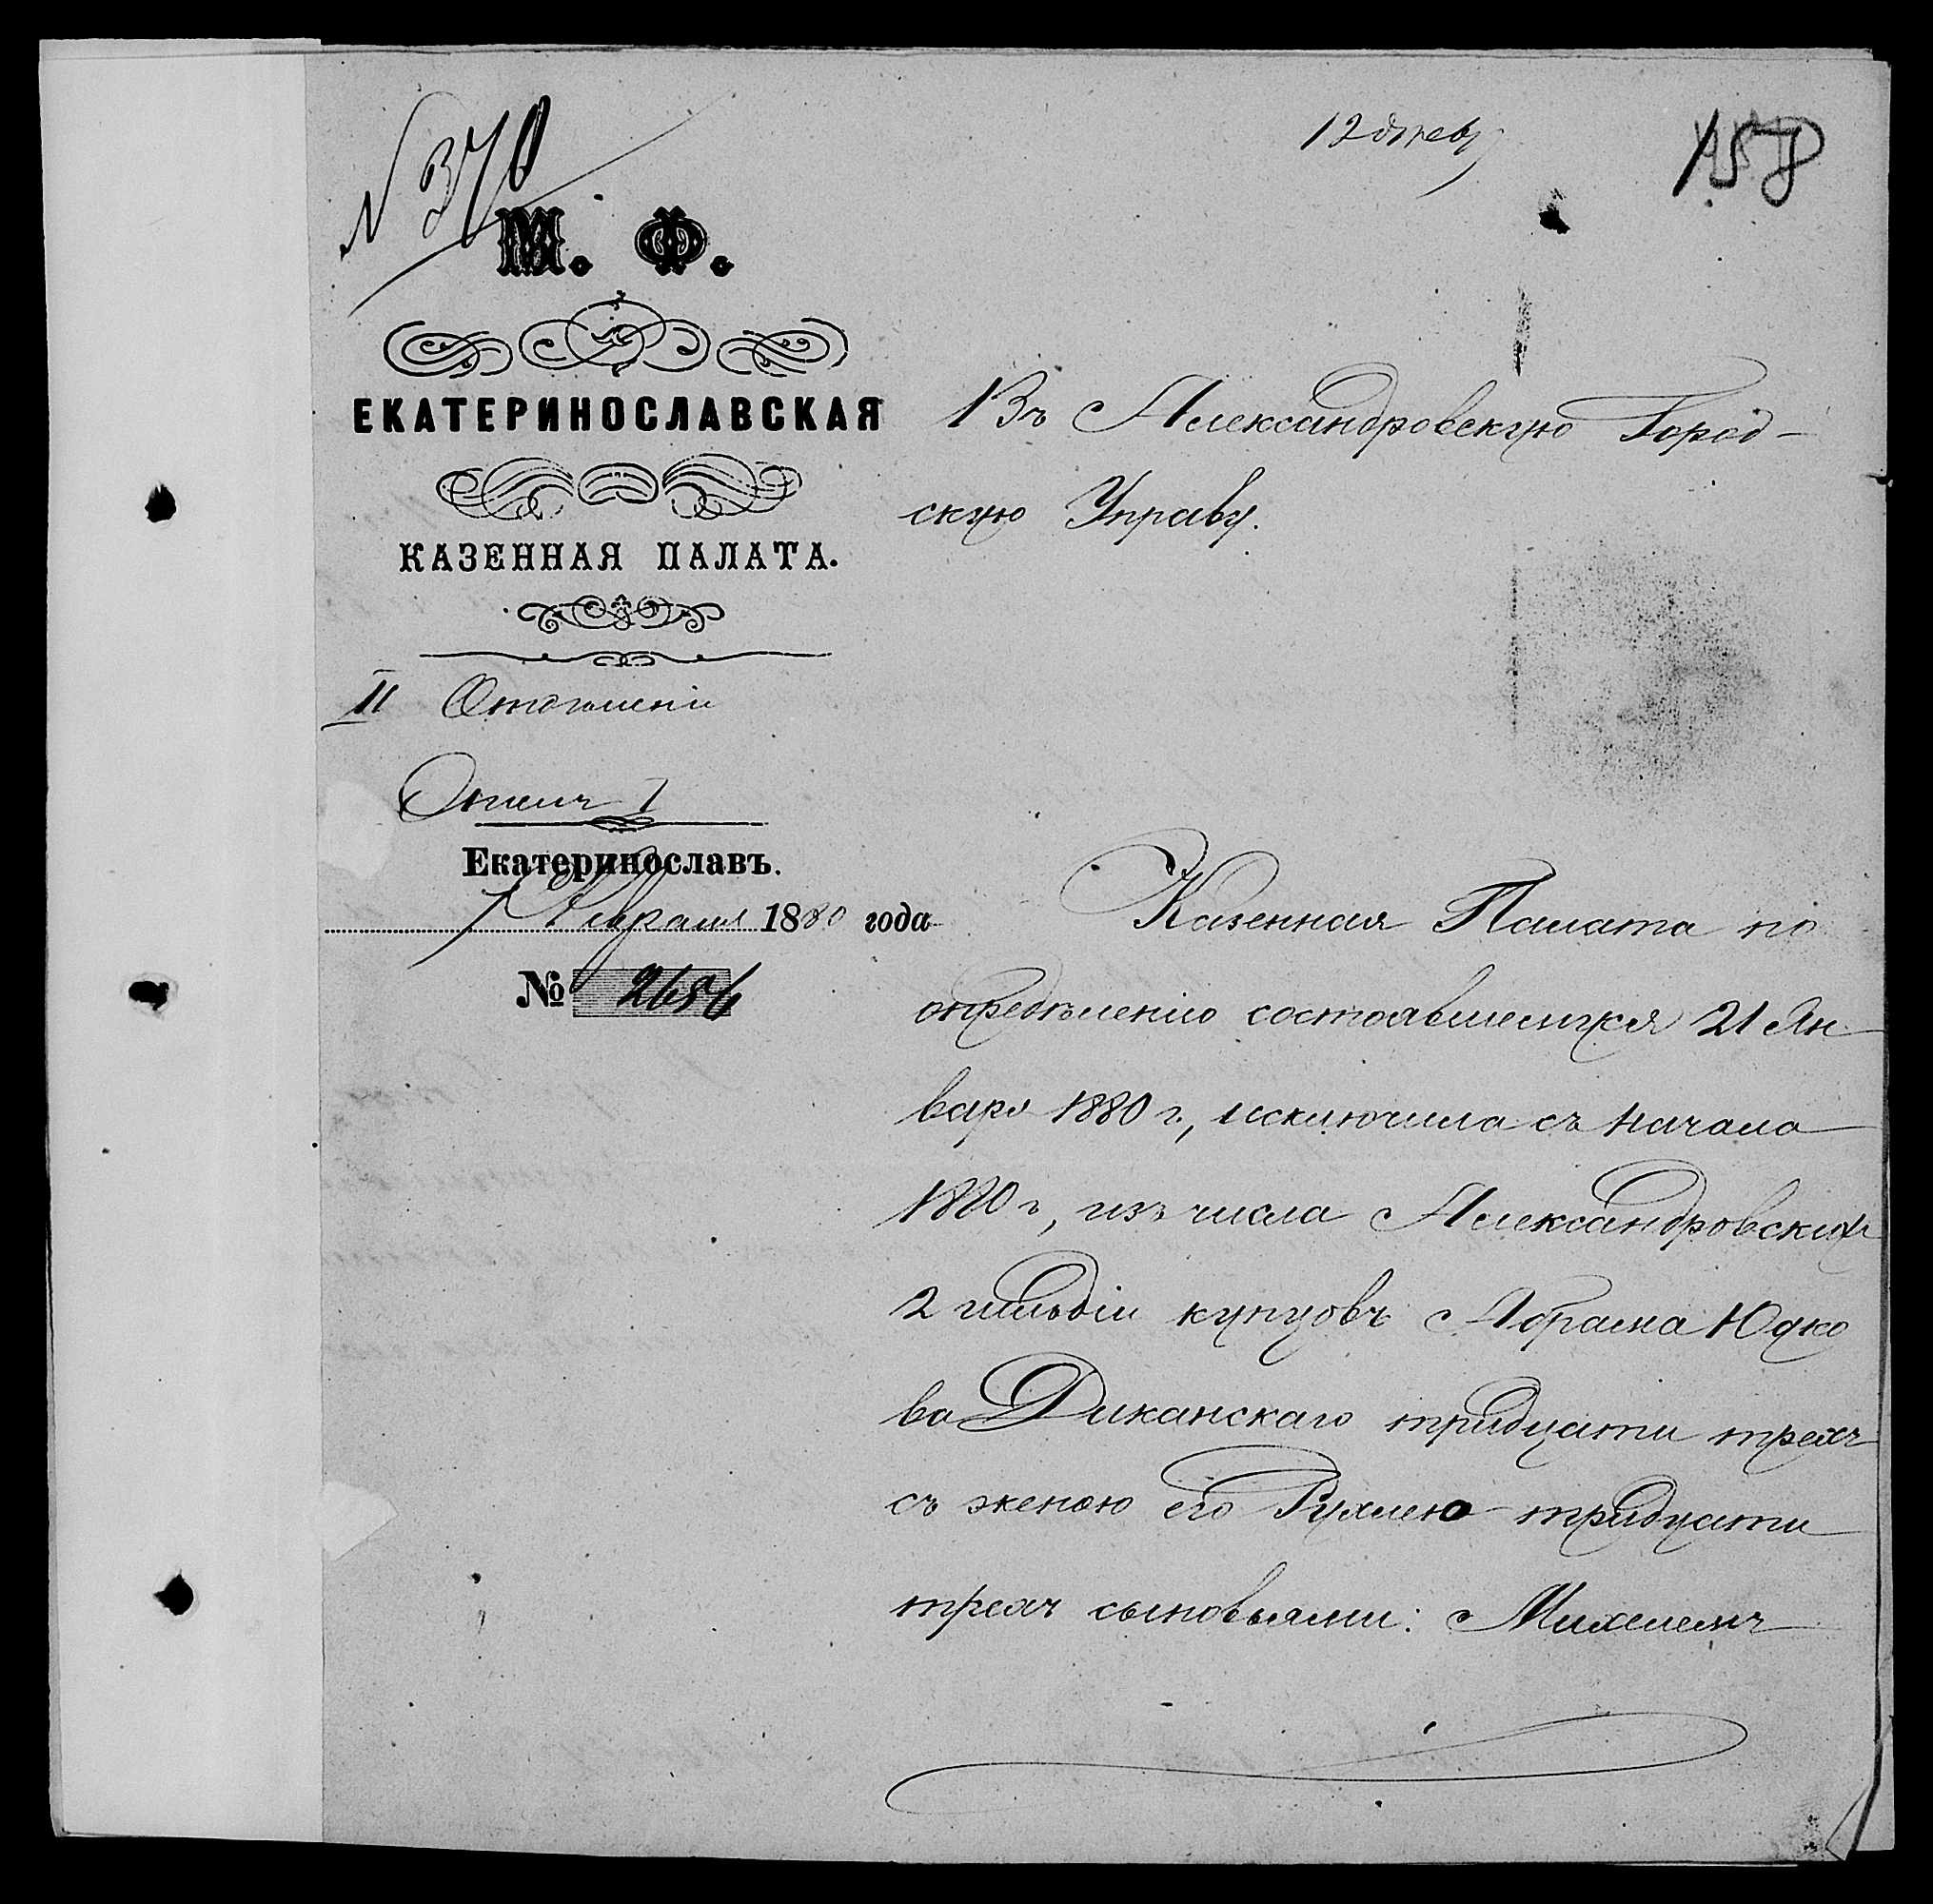 N 370
12 февр
158
М. Ф.
ЕКАТЕРИНОСЛАВСКАЯ
КАЗЕННАЯ ПАЛАТА.
II Отдѣленіе
Столъ 1
Екатеринославъ.
7 Февраля 1880 года
№ 2656
Въ Александровскую Город-
скую Управу.
Казенная Палата по
опредѣленію состоявшемуся 21 Ян
варя 1880 г., исключила съ начала
1880 г, изъ числа Александровскихъ
2 гильдіи купцовъ Абрама Юдко
ва Диканскаго тридцати трехъ
съ женою его Рухлею тридцати
трехъ сыновьями: Михелемъ